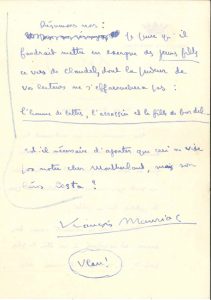 Résumons-nous :
Je pense qu'il
faudrait mettre en exergue des jeunes filles
ce vers de Claudel, dont la pudeur de
vos lecteurs ne s'effarouchera pas :
L'homme de lettre, l'assassin et la fille de bordel.
Est-il nécessaire d'ajouter que ceci ne vise
pas notre cher Montherland, mais son
héros Costa ?
François Mauriac
Vlan !